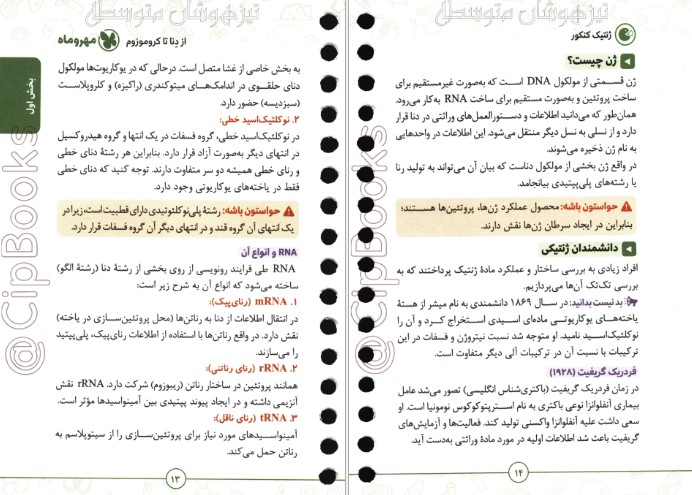 تیزهوشان متوسطه
از دِنا تا کروموزوم
مهروماه
بخش اول
به بخش خاصی از غشا متصل است. درحالی که در یوکاریوت‌ها مولکول
دنای حلقوی در اندامک‌های میتوکندری (راکیزه) و کلروپلاست
(سبزدیسه) حضور دارد.
۲. نوکلئیک‌اسید خطی:
در نوکلئیک‌اسید خطی، گروه فسفات در یک انتها و گروه هیدروکسیل
در انتهای دیگر به‌صورت آزاد قرار دارد. بنابراین هر رشتۀ دنای خطی
و رنای خطی همیشه دو سر متفاوت دارند. توجه کنید که دنای خطی
فقط در یاخته‌های یوکاریوتی وجود دارد.
حواستون باشه: رشتۀ پلی‌نوکلئوتیدی دارای قطبیت است، زیرا در
یک انتهای آن گروه قند و در انتهای دیگر آن گروه فسفات قرار دارد.
RNA و انواع آن
RNA طی فرایند رونویسی از روی بخشی از رشتۀ دنا (رشتۀ الگو)
ساخته می‌شود که انواع آن به شرح زیر است:
۱. mRNA (رنای‌پیک):
در انتقال اطلاعات از دنا به رناتن‌ها (محل پروتئین‌سازی در یاخته)
نقش دارد. در واقع رناتن‌ها با استفاده از اطلاعات رنای‌پیک، پلی‌پپتید
را می‌سازند.
۲. rRNA (رنای رناتنی):
همانند پروتئین در ساختار رناتن (ریبوزوم) شرکت دارد. rRNA نقش
آنزیمی داشته و در ایجاد پیوند پپتیدی بین آمینواسیدها مؤثر است.
۳. tRNA (رنای ناقل):
آمینواسیدهای مورد نیاز برای پروتئین‌سازی را از سیتوپلاسم به
رناتن حمل می‌کند.
۱۳
@CipBooks
تیزهوشان متوسطه
ژنتیک کنکور
ژن چیست؟
ژن قسمتی از مولکول DNA است که به‌صورت غیرمستقیم برای
ساخت پروتئین و به‌صورت مستقیم برای ساخت RNA به‌کار می‌رود.
همان‌طور که می‌دانید اطلاعات و دستورالعمل‌های وراثتی در دنا قرار
دارد و از نسلی به نسل دیگر منتقل می‌شود. این اطلاعات در واحدهایی
به نام ژن ذخیره می‌شوند.
در واقع ژن بخشی از مولکول دناست که بیان آن می‌تواند به تولید رنا
یا رشته‌های پلی‌پپتیدی بیانجامد.
حواستون باشه: محصول عملکرد ژن‌ها، پروتئین‌ها هستند؛
بنابراین در ایجاد سرطان ژن‌ها نقش دارند.
دانشمندان ژنتیکی
افراد زیادی به بررسی ساختار و عملکرد مادۀ ژنتیک پرداختند که به
بررسی تک‌تک آن‌ها می‌پردازیم.
بد نیست بدانید: در سال ۱۸۶۹ دانشمندی به نام میشر از هستۀ
یاخته‌های یوکاریوتی ماده‌ای اسیدی استخراج کرد و آن را
نوکلئیک‌اسید نامید. او متوجه شد نسبت نیتروژن و فسفات در این
ترکیبات با نسبت آن در ترکیبات آلی دیگر متفاوت است.
فردریک گریفیت (۱۹۲۸)
در زمان فردریک گریفیت (باکتری‌شناس انگلیسی) تصور می‌شد عامل
بیماری آنفلوانزا نوعی باکتری به نام استرپتوکوکوس نومونیا است. او
سعی داشت علیه آنفلوانزا واکسنی تولید کند. فعالیت‌ها و آزمایش‌های
گریفیت باعث شد اطلاعات اولیه در مورد مادۀ وراثتی به‌دست آید.
۱۴
@CipBooks